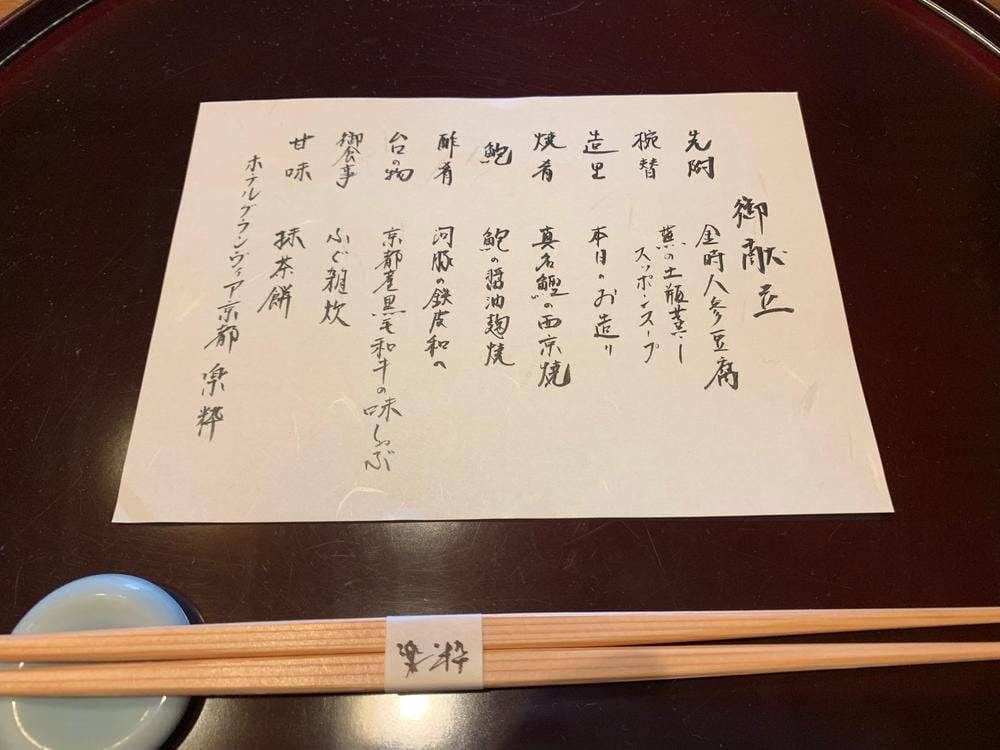 御献立
先附 金時人参豆腐
椀替 蕪の土瓶蒸し
スッポンスープ
造里 本日のお造り
焼肴 真名鰹の西京焼
鮑 鮑の醤油麹焼
酢肴 河豚の鉄皮和へ
台の物 京都産黒毛和牛の味しゃぶ
御食事 ふぐ雑炊
甘味 抹茶餅
ホテルグランヴィア京都 楽粋
楽粋